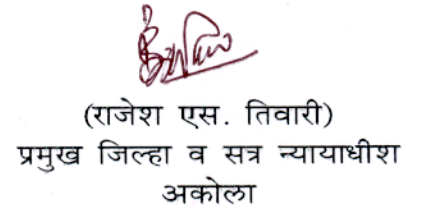 (राजेश एस. तिवारी)
प्रमुख जिल्हा व सत्र न्यायाधीश
अकोला